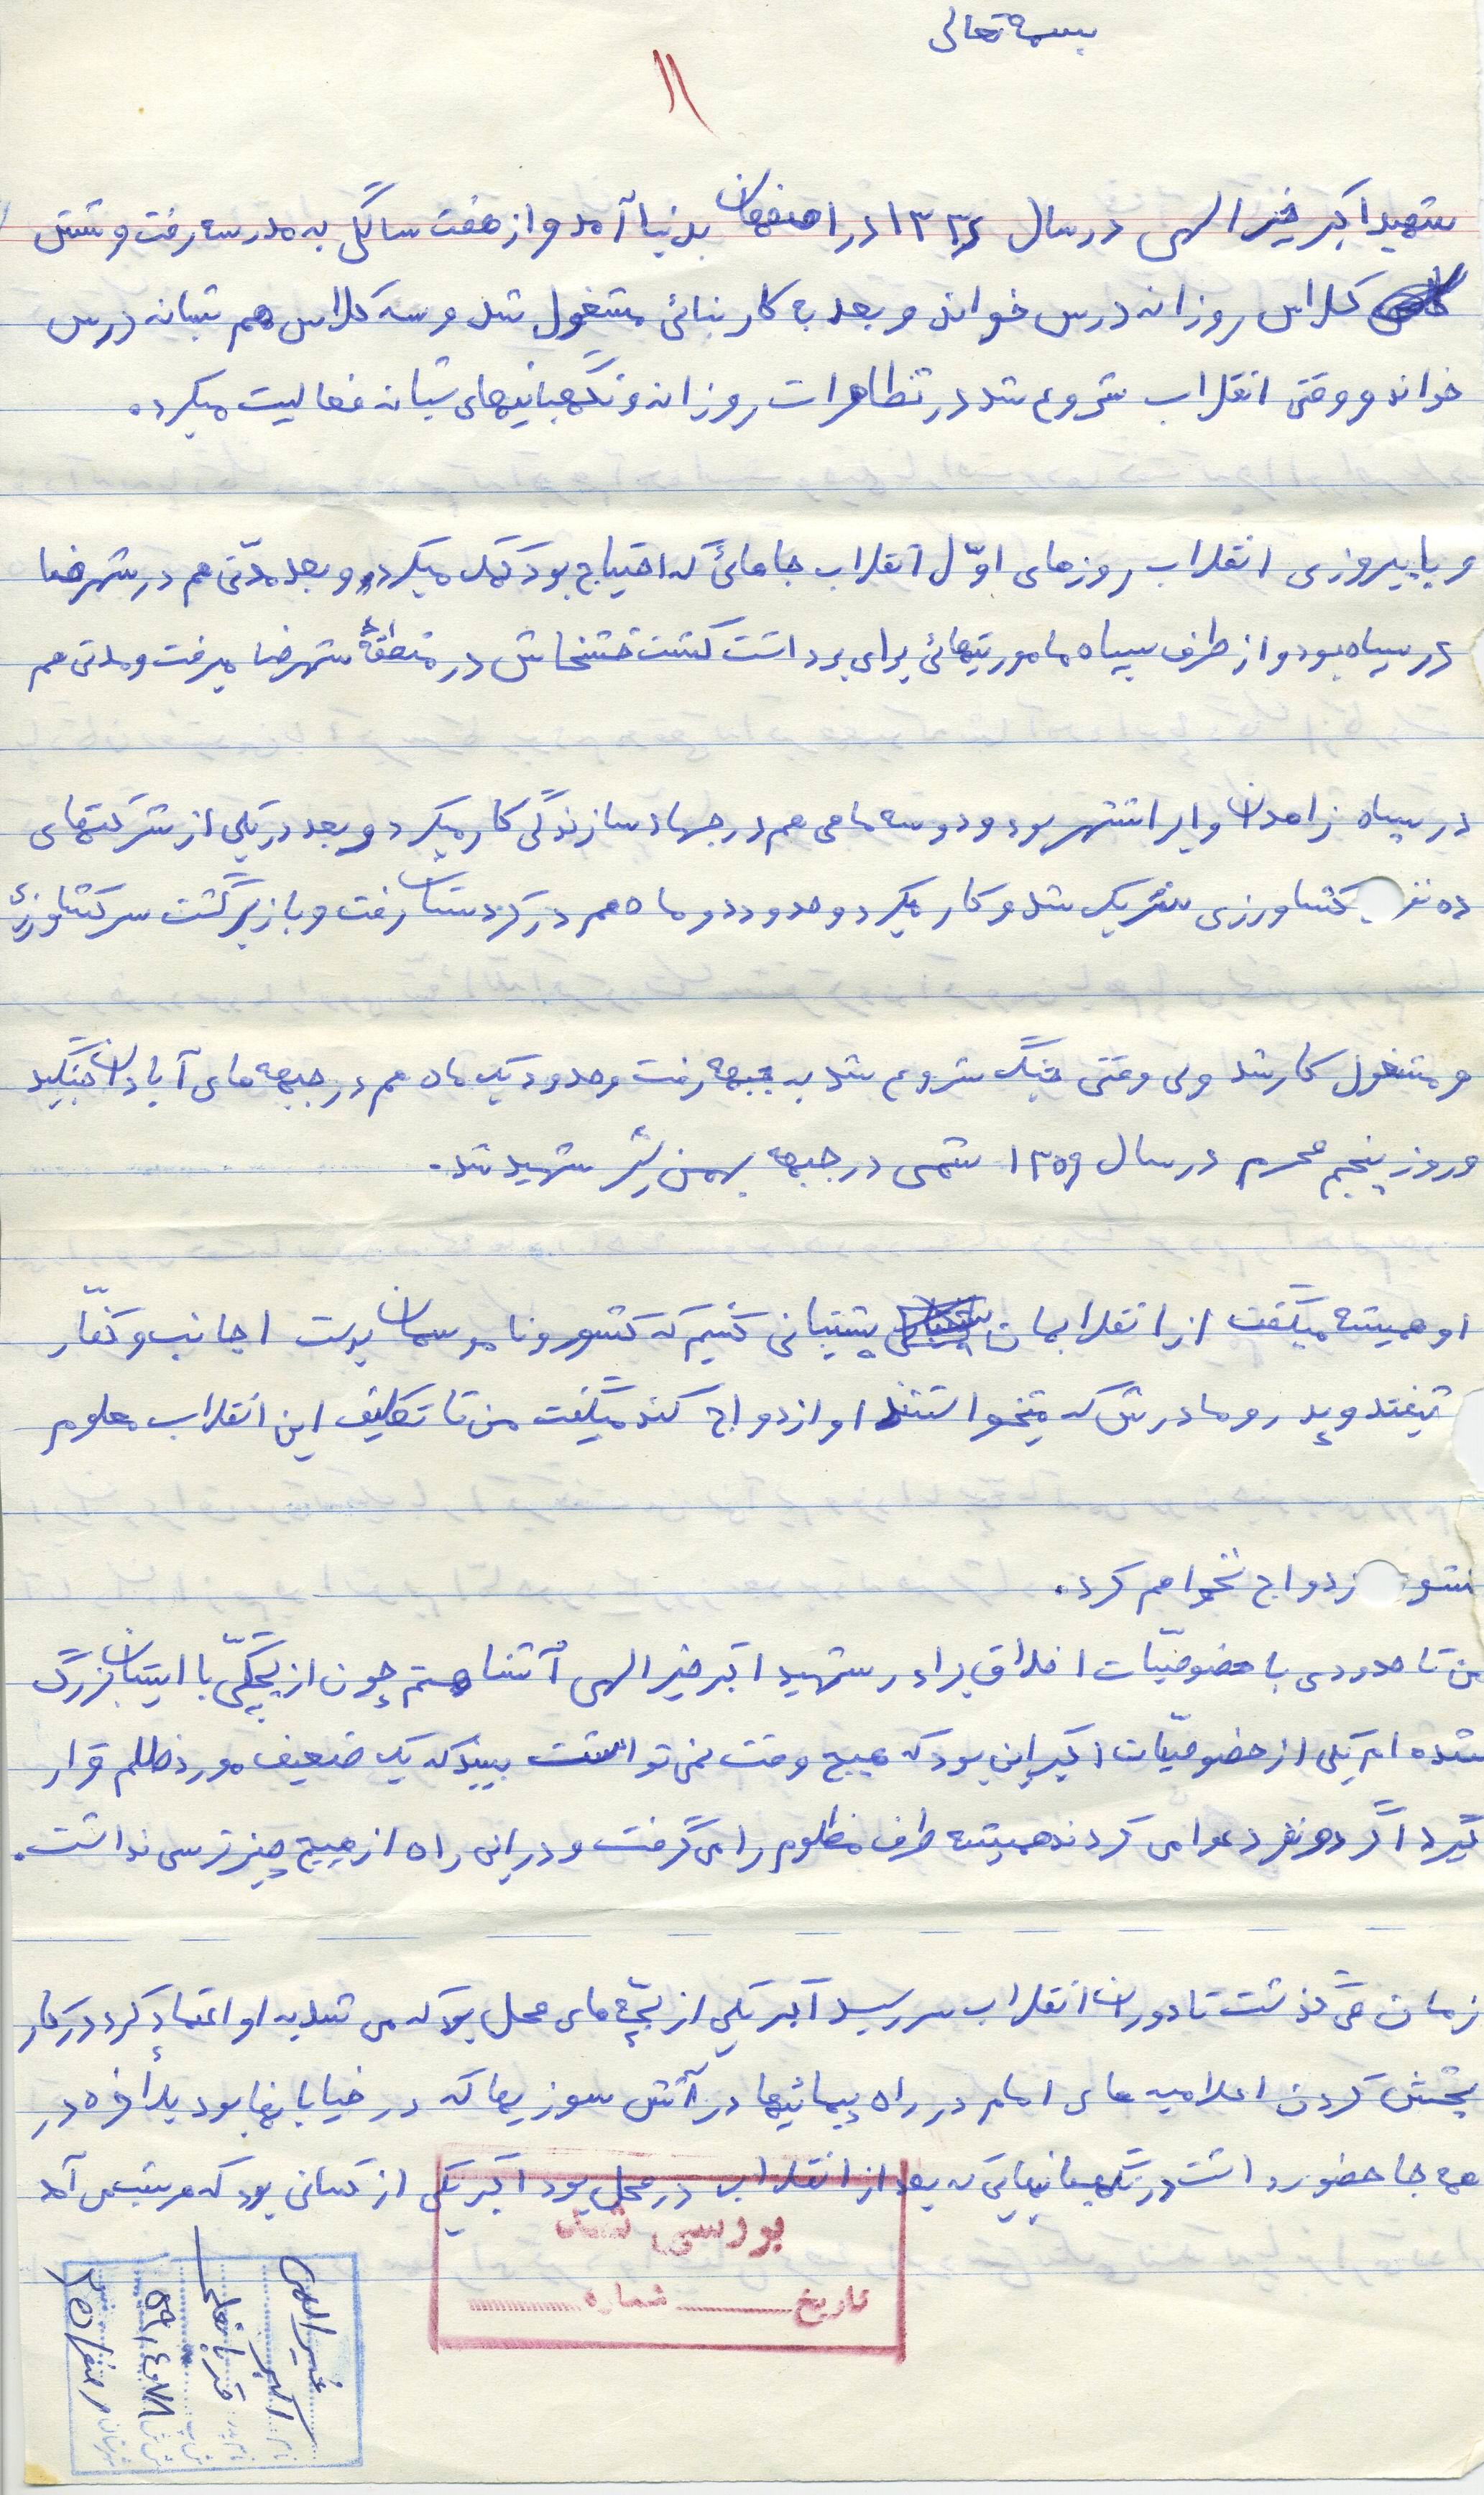 بسمه تعالی
۱۱
شهید اکبر خیرالهی در سال ۱۳۳۴ در اصفهان بدنیا آمد و از هفت سالگی به مدرسه رفت و شش
کلاس روزانه درس خواند و بعد به کار بنائی مشغول شد و سه کلاس هم شبانه درس
خواند و وقتی انقلاب شروع شد در تظاهرات روزانه و نگهبانیهای شبانه فعالیت میکرد.
و با پیروزی انقلاب روزهای اوّل انقلاب جاهائی که احتیاج بود کمک میکرد و بعد مدّتی هم در شهرضا
در سپاه بود و از طرف سپاه ماموریتهائی برای برداشت کشت خشخاش در منطقهٔ شهرضا میرفت و مدتی هم
در سپاه زاهدان و ایرانشهر بود و دو سه ماهی هم در جهاد سازندگی کار میکرد و بعد در یکی از شرکتهای
ده نفر کشاورزی شریک شد و کار میکرد و حدود دو ماه هم در کردستان رفت و باز برگشت سر کشاورزی
و مشغول کار شد ولی وقتی جنگ شروع شد به جبهه رفت و حدود یک ماه هم در جبهه های آبادان جنگید
و روز پنجم محرم در سال ۱۳۵۹ شمسی در جبهه بهمن شیر شهید شد.
او همیشه میگفت از انقلابمان پشتیبانی کنیم که کشور و ناموسمان بدست اجانب و کفّار
نیفتد و پدر و مادرش که میخواستند او ازدواج کند میگفت من تا تکلیف این انقلاب معلوم
نشود ازدواج نخواهم کرد.
من تا حدودی با خصوصیّات اخلاق برادر شهید اکبر خیرالهی آشنا هستم چون از بچگّی با ایشان بزرگ
شده ام یکی از خصوصیّات اکبر این بود که هیچ وقت نمی توانست ببیند که یک ضعیف مورد ظلم قرار
گیرد اگر دو نفر دعوا می کردند همیشه طرف مظلوم را می گرفت و در این راه از هیچ چیز ترسی نداشت.
زمان می گذشت تا دوران انقلاب سر رسید اکبر یکی از بچّه های محل بود که می شد به او اعتماد کرد در کار
پخش کردن اعلامیه های امام در راه پیمائیها در آتش سوزیها که در خیابانها بود بلأخره در
همه جا حضور داشت در نگهبانیهایی که بعد از انقلاب در محل بود اکبر یکی از کسانی بود که مرتب می آمد
بررسی شد
تاریخ شماره
خیرالهی
نام اکبر
نام پدر قربانعلی